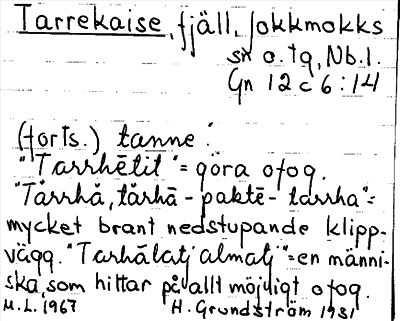 Tarrekaise, fjäll, Jokkmokks
sn o. tg, Nb.l.
Gn 12 c 6:14
(forts.) tanne:
"Tarrhētit" = göra ofog.
"Tårrhå, tårhā - paktē - tarrha" =
mycket brant nedstupande klipp-
vägg. "Tarhālatj almatj" = en männi-
ska, som hittar på allt möjligt ofog.
M.L. 1967 H. Grundström 1931